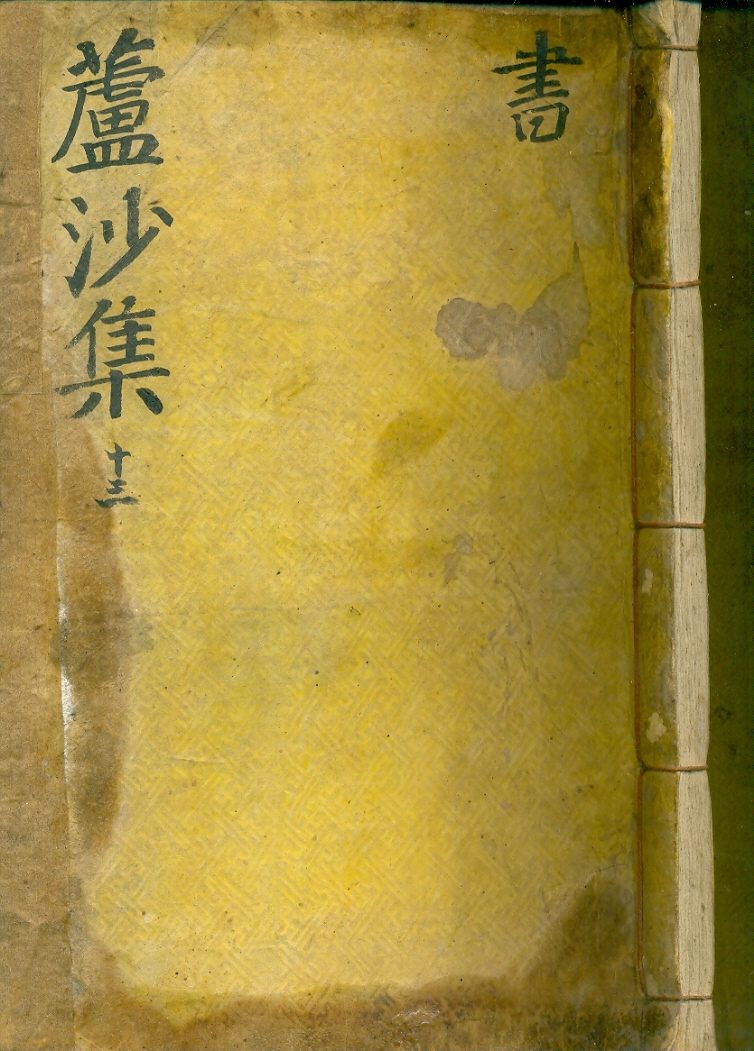 書
蘆沙集
十三